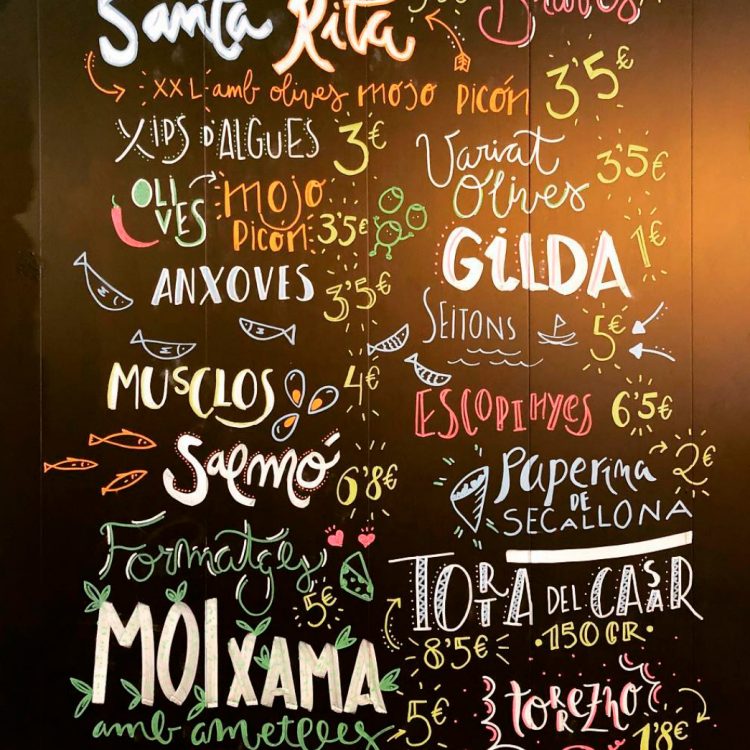 Santa Rita
Braves
XXL amb olives MOJO PICÓN 3'5€
XIPS D'ALGUES 3€
Variat Olives 3'5€
OLIVES MOJO PICÓN 3'5€
GILDA 1€
ANXOVES 3'5€
SEITONS 5€
MUSCLOS 4€
ESCOPINYES 6'5€
Salmó 6'8€
PAPERINA DE SECALLONA 2€
Formatges 5€
TORTA DEL CASAR
·150GR· 8'5€
MOIXAMA
amb ametlles 5€
torrezno 1'8€